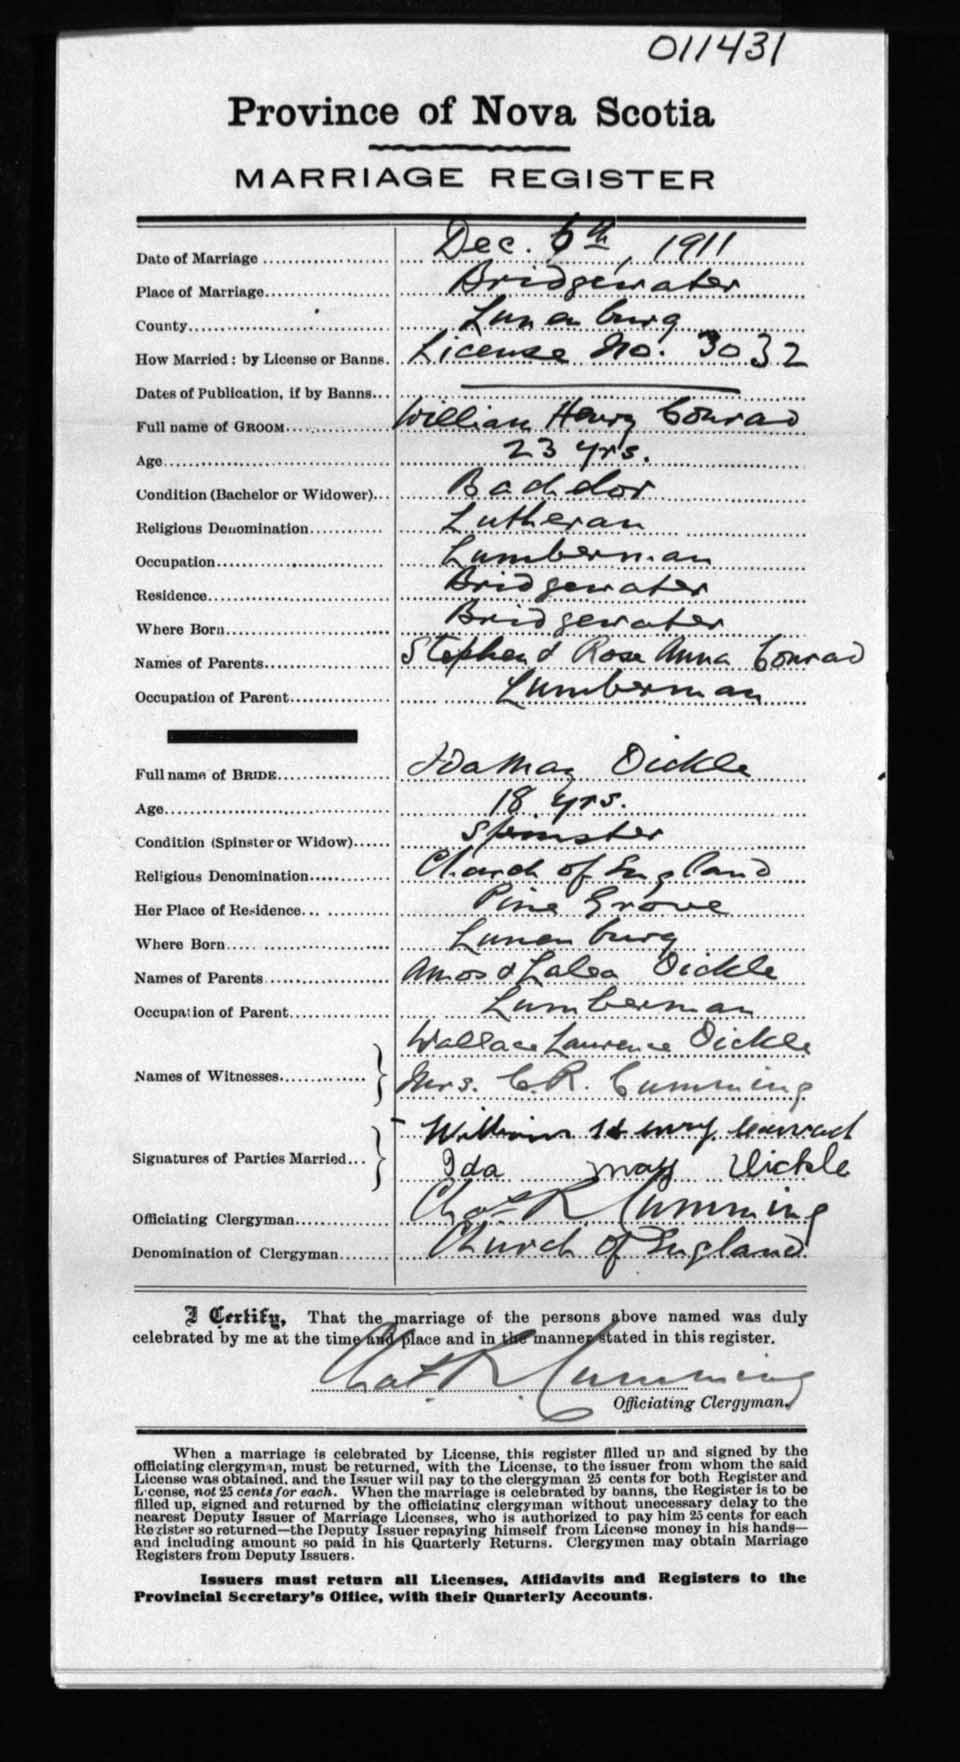 011431
Province of Nova Scotia
MARRIAGE REGISTER
Date of Marriage Dec. 6th, 1911
Place of Marriage Bridgewater
County Lunenburg
How Married: by License or Banns. License No. 3032
Dates of Publication, if by Banns
Full name of GROOM William Henry Conrad
Age 23 yrs.
Condition (Bachelor or Widower) Bachelor
Religious Denomination Lutheran
Occupation Lumberman
Residence Bridgewater
Where Born Bridgewater
Names of Parents Stephen & Rose Anna Conrad
Occupation of Parent Lumberman
Full name of BRIDE Ida May Dickle
Age 18 yrs.
Condition (Spinster or Widow) Spinster
Religious Denomination Church of England
Her Place of Residence Pine Grove
Where Born Lunenburg
Names of Parents Amos & Dickle
Occupation of Parent Lumberman
Wallace Laurence Dickle
Names of Witnesses Mrs. C. R. Cumming
William Henry Conrad
Signatures of Parties Married Ida may Dickle
Officiating Clergyman Chas. R. Cumming
Denomination of Clergyman Church of England
I Certify, That the marriage of the persons above named was duly
celebrated by me at the time and place and in the manner stated in this register.
Chas. R. Cumming
Officiating Clergyman.
When a marriage is celebrated by License, this register filled up and signed by the
officiating clergyman, must be returned, with the License, to the issuer from whom the said
License was obtained, and the Issuer will pay to the clergyman 25 cents for both Register and
License, not 25 cents for each. When the marriage is celebrated by banns, the Register is to be
filled up, signed and returned by the officiating clergyman without unecessary delay to the
nearest Deputy Issuer of Marriage Licenses, who is authorized to pay him 25 cents for each
Register so returned—the Deputy Issuer repaying himself from License money in his hands—
and including amount so paid in his Quarterly Returns. Clergymen may obtain Marriage
Registers from Deputy Issuers.
Issuers must return all Licenses, Affidavits and Registers to the
Provincial Secretary's Office, with their Quarterly Accounts.